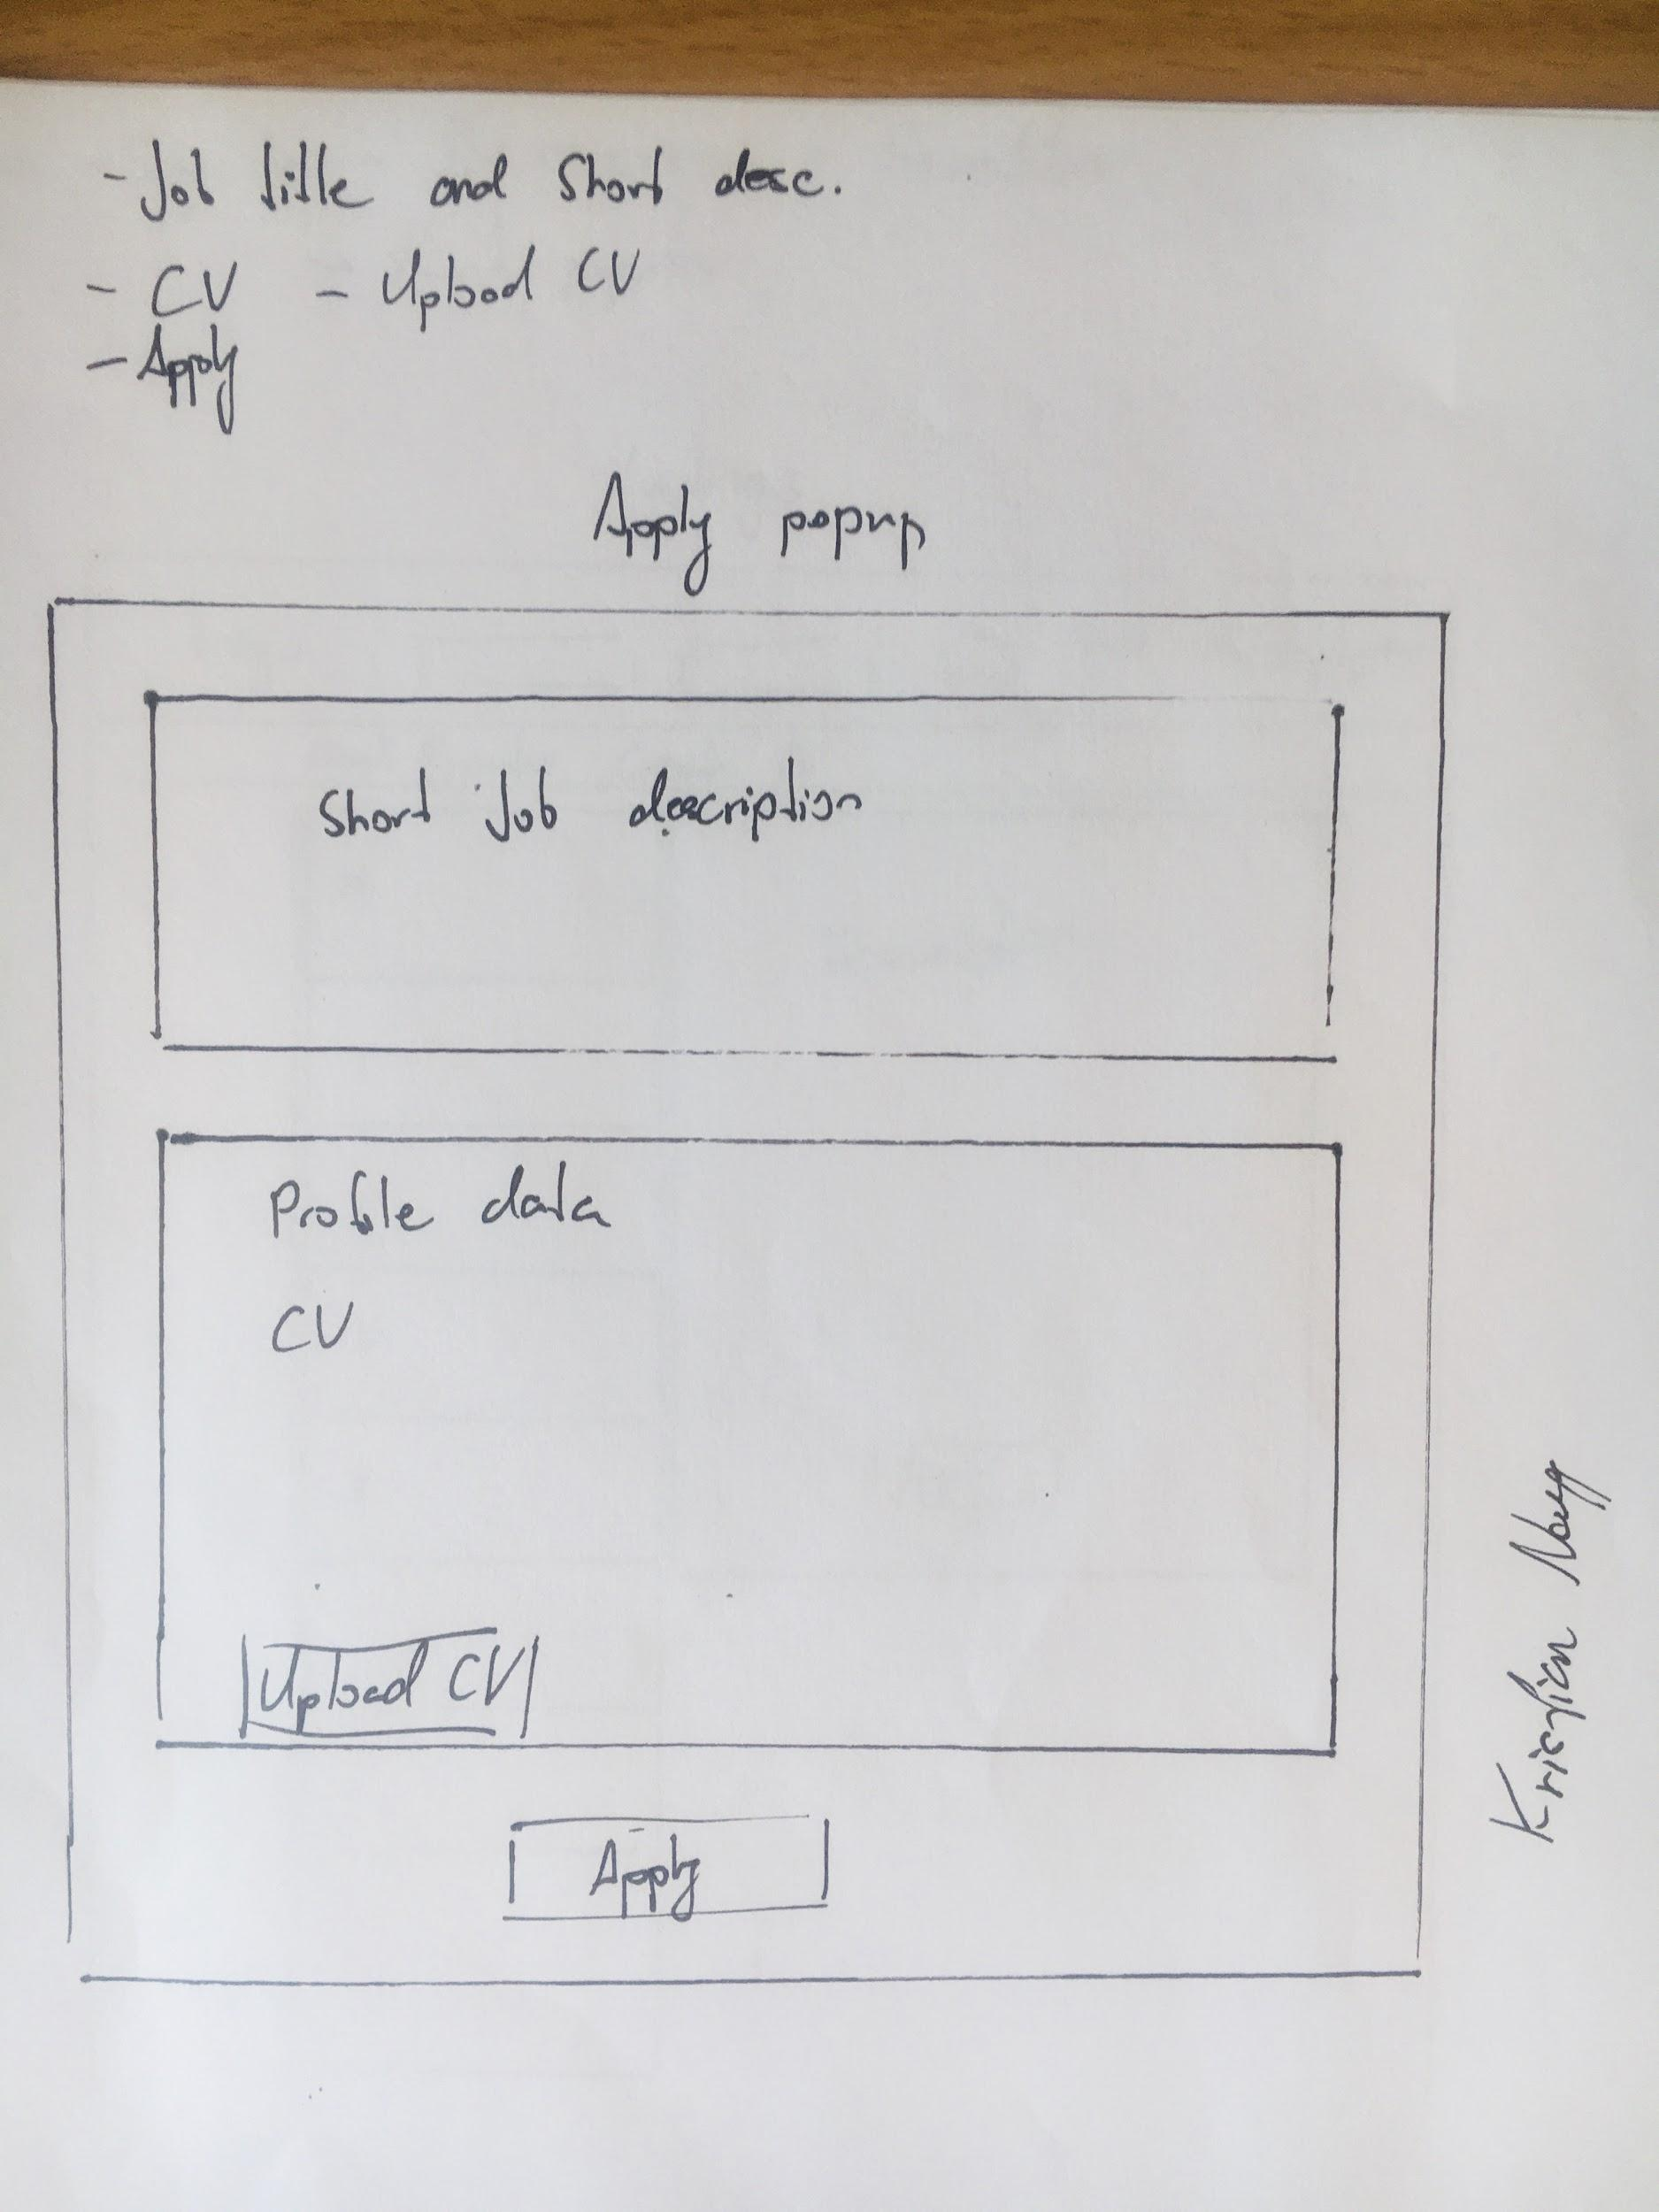 - Job title and short desc.
- CV - Upload CV
- Apply
Apply popup
Short Job description
Profile data
CV
Upload CV
Apply
Krisztian Nagy